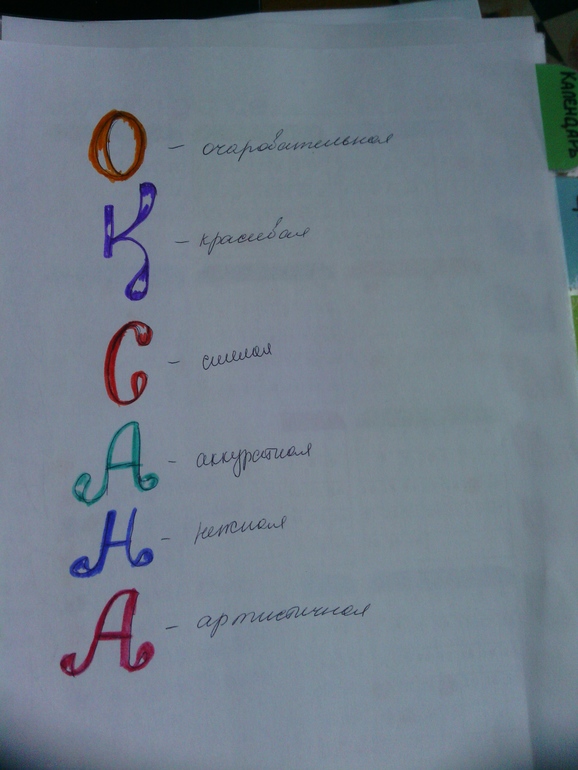 О – очаровательная
К – красивая
С – симпая
А – аккуратная
Н – нежная
А – артистичная
КАЛЕНДАРЬ